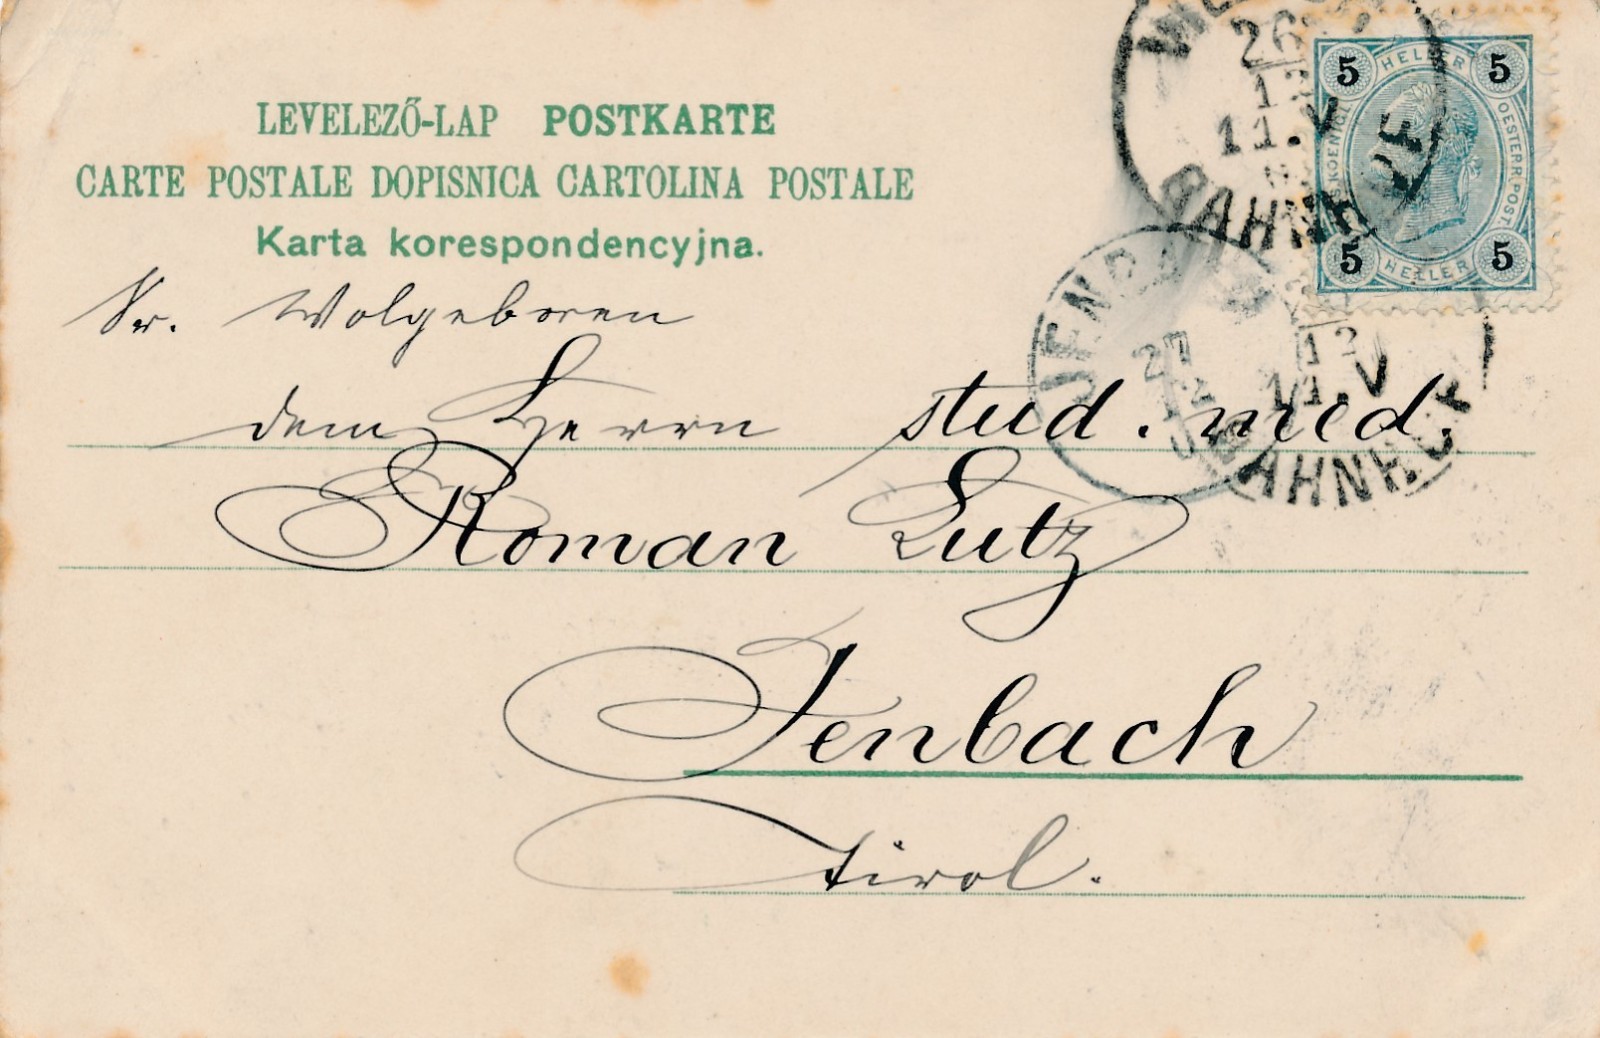 LEVELEZŐ-LAP POSTKARTE
CARTE POSTALE DOPISNICA CARTOLINA POSTALE
Karta korespondencyjna.
Sr. Wolgeboren
dem Herrn stud. med.
Roman Lutz
Jenbach
Tirol.
5 HELLER 5
OESTERR. POST.
5 HELLER 5
26
12
11.V
BAHNHOF
JENBACH
27
12
12
11.V
BAHNHOF